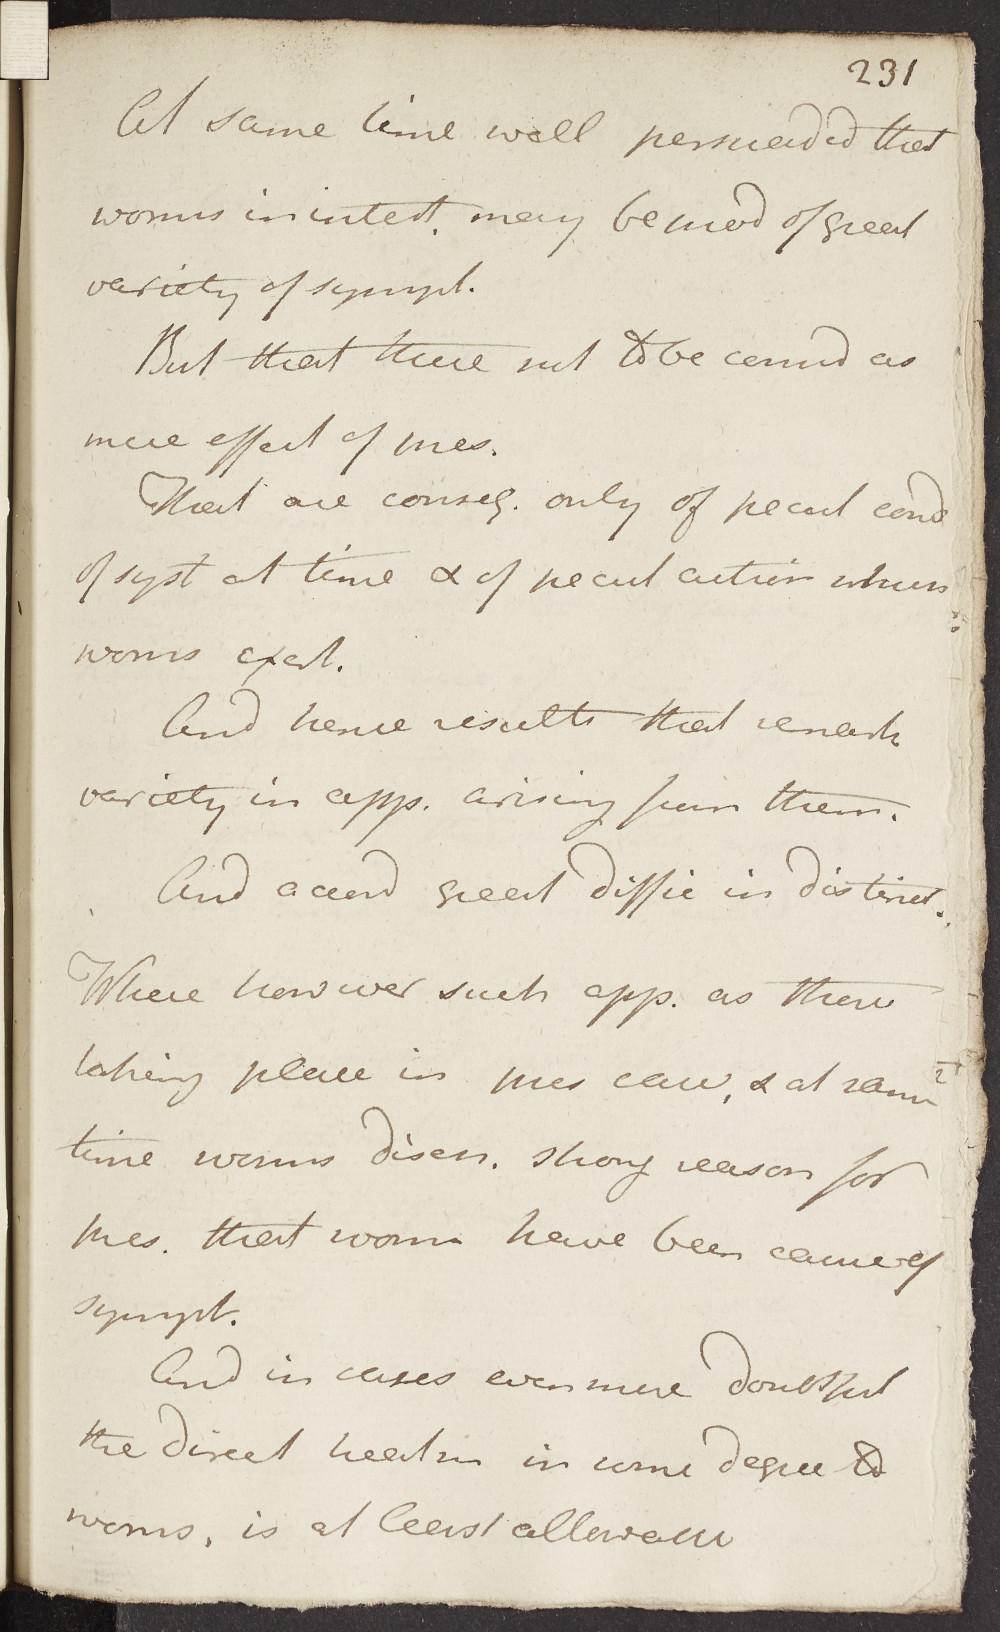 231
At same time well persuaded that
worms in intest. may be prod of great
variety of sympt.
But that these not to be consid as
mere effect of pres.
That are conseq. only of pecul cond
of syst at time & of pecul action where
worms exist.
And hence results that remark
variety in app. arising from them.
And accord great diffic in distinct.
Where however such app. as these
taking place in pres case, & at same
time worms disch. strong reason for
pres. that worms have been cause of
sympt.
And in cases even more doubtful
the direct treatm in some degree to
worms, is at least allowable